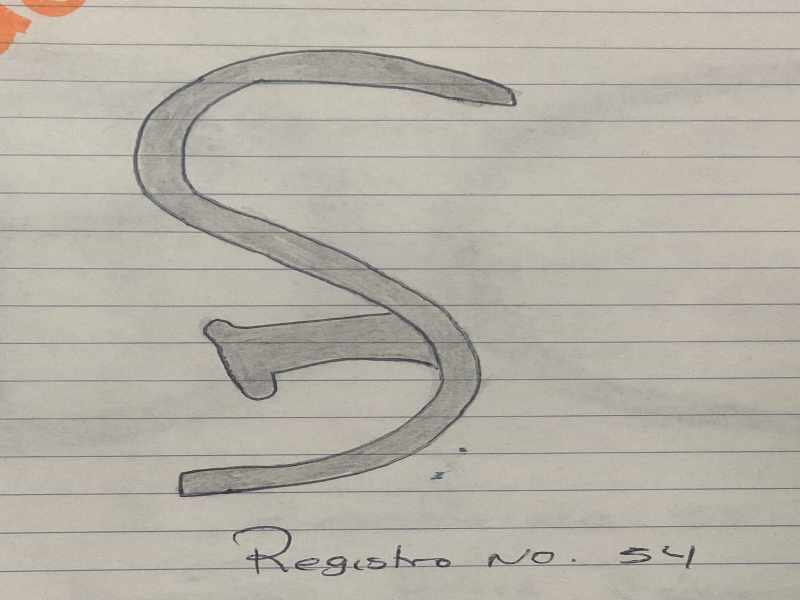 S
Registro No. 54